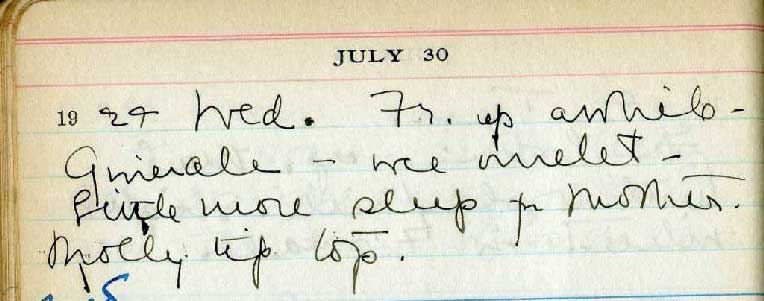 JULY 30
1924 Wed. Fr. up awhile -
Gingerale - wee omelet -
Little more sleep for Mother.
Molly tip top.